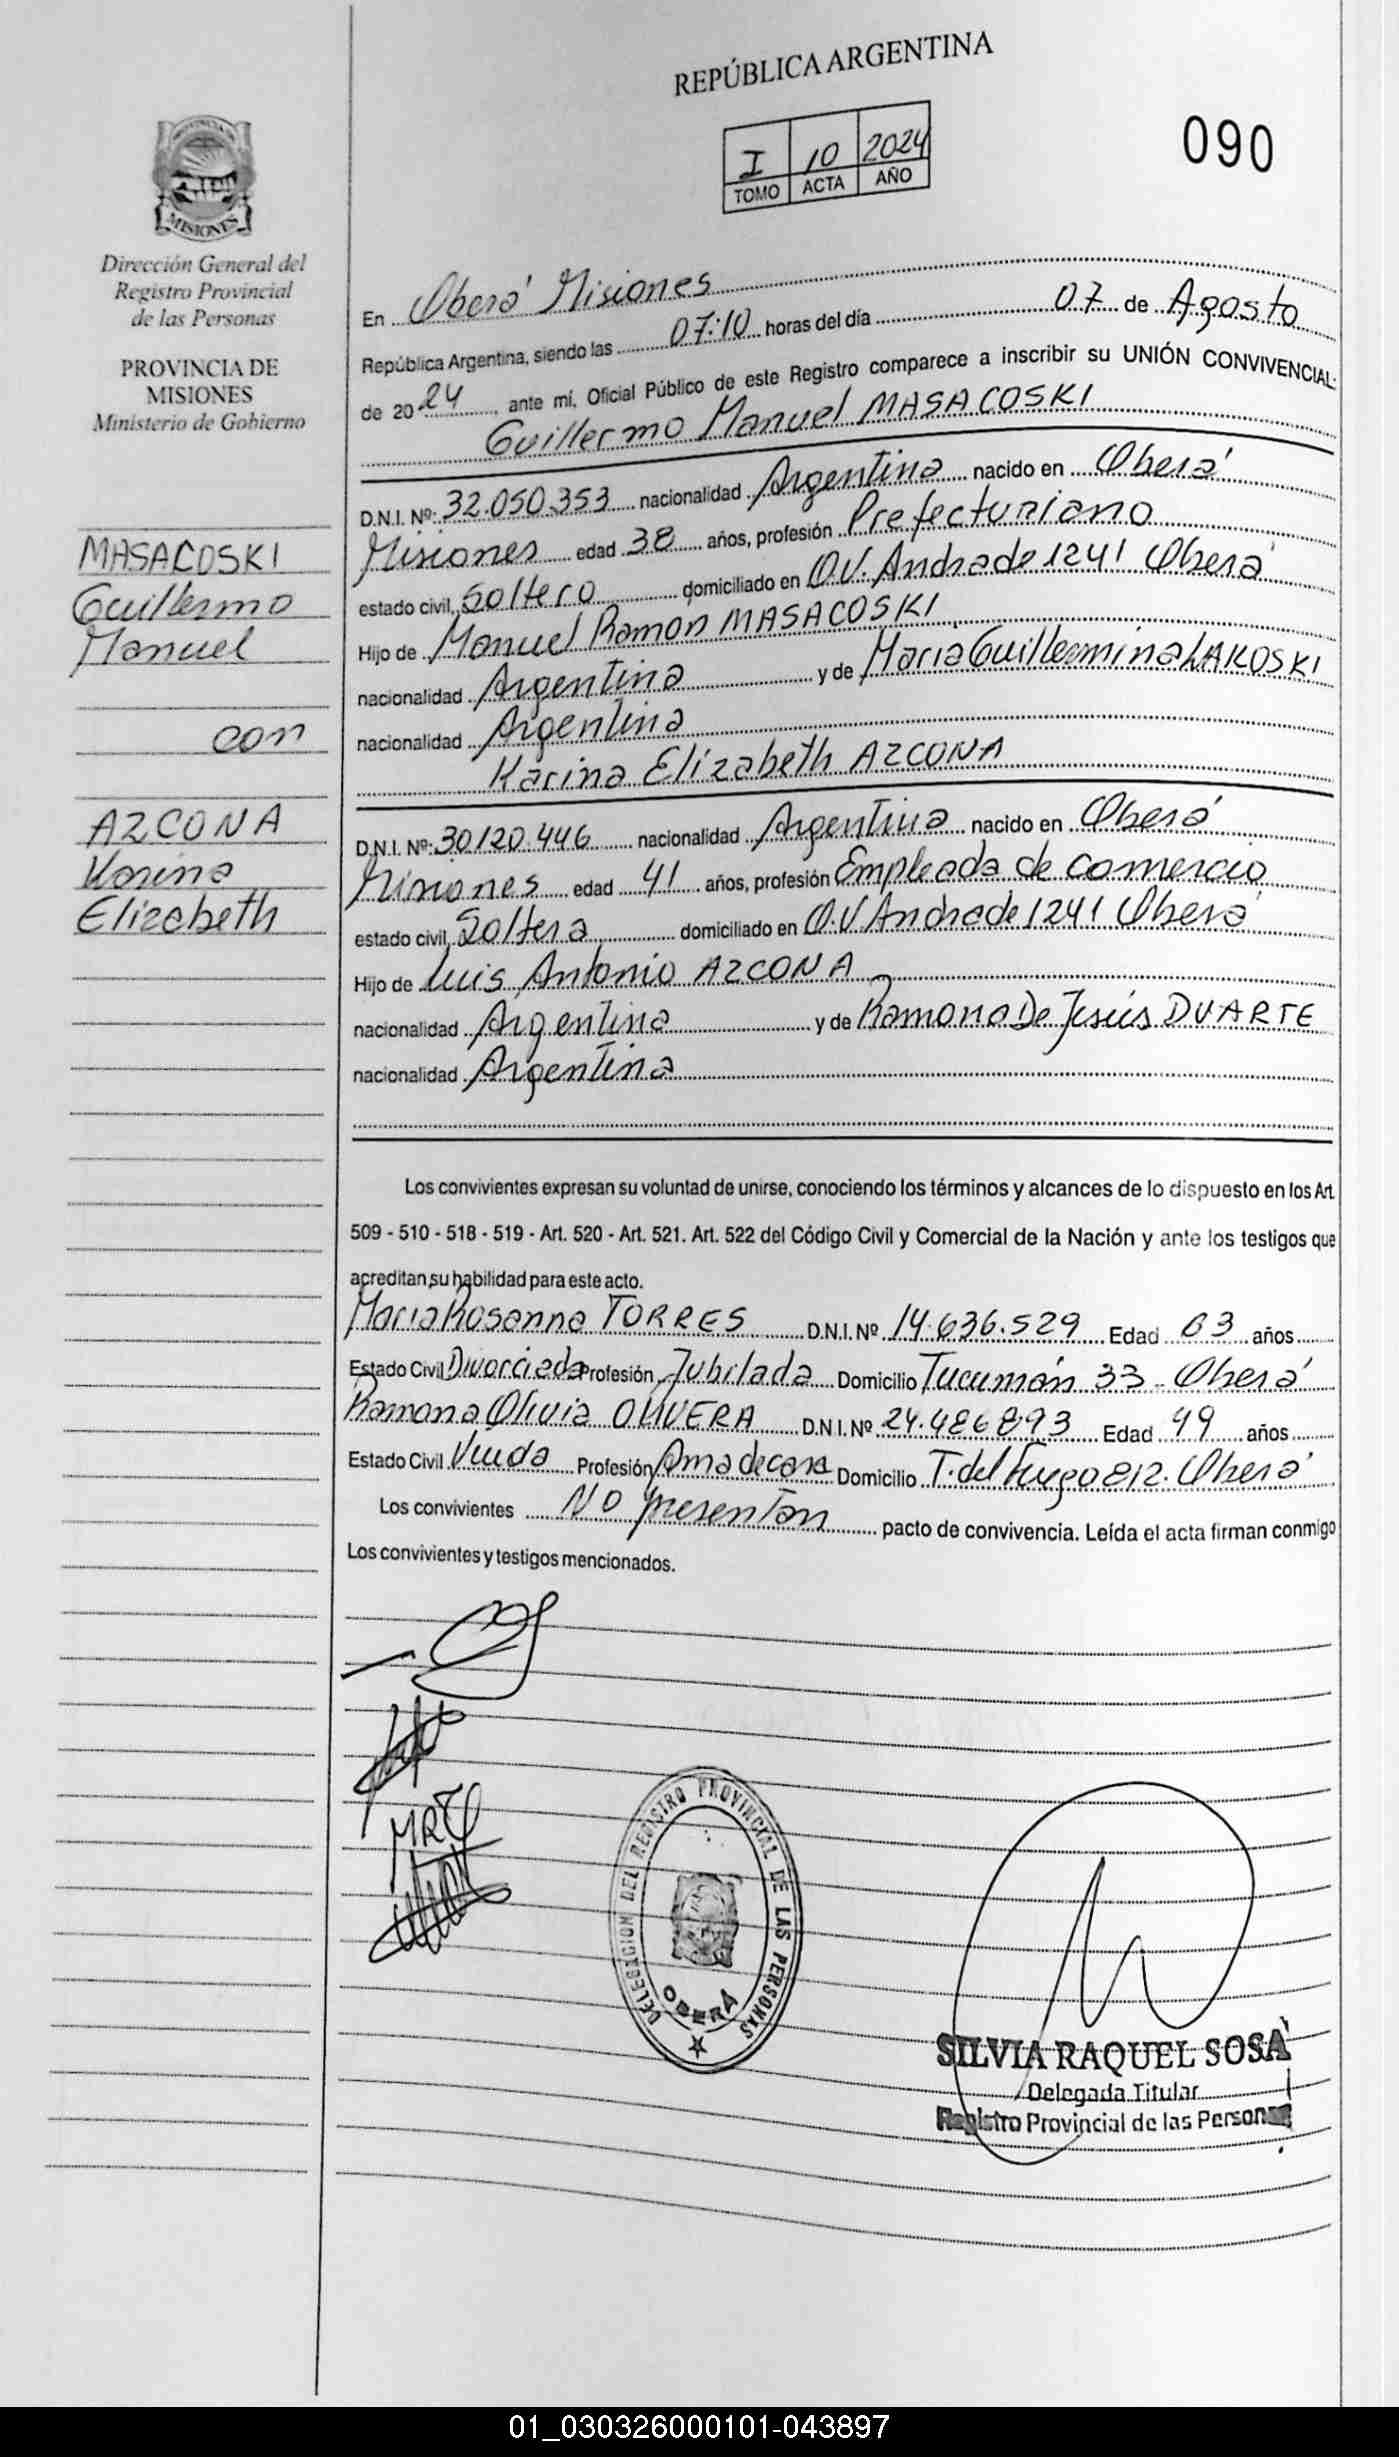 REPÚBLICA ARGENTINA
I 10 2024
TOMO ACTA AÑO
090
PROVINCIA DE
MISIONES
Dirección General del
Registro Provincial
de las Personas
PROVINCIA DE
MISIONES
Ministerio de Gobierno
MASACOSKI
Guillermo
Manuel
con
AZCONA
Karina
Elizabeth
En Oberá Misiones
República Argentina, siendo las 07:10 horas del día 07 de Agosto
de 2024, ante mí, Oficial Público de este Registro comparece a inscribir su UNIÓN CONVIVENCIAL:
Guillermo Manuel MASACOSKI
D.N.I. Nº: 32.050.353 nacionalidad Argentina nacido en Oberá
Misiones edad 38 años, profesión Prefecturiano
estado civil, Soltero domiciliado en O.V. Andrade 1241 Oberá
Hijo de Manuel Ramon MASACOSKI
nacionalidad Argentina y de Maria Guillermina LAKOSKI
nacionalidad Argentina
Karina Elizabeth AZCONA
D.N.I. Nº: 30.120.446 nacionalidad Argentina nacido en Oberá
Misiones edad 41 años, profesión Empleada de comercio
estado civil, Soltera domiciliado en O.V Andrade 1241 Oberá
Hijo de Luis Antonio AZCONA
nacionalidad Argentina y de Ramona De Jesús DUARTE
nacionalidad Argentina
Los convivientes expresan su voluntad de unirse, conociendo los términos y alcances de lo dispuesto en los Art.
509 - 510 - 518 - 519 - Art. 520 - Art. 521. Art. 522 del Código Civil y Comercial de la Nación y ante los testigos que
acreditan su habilidad para este acto.
Maria Rosanna TORRES D.N.I. Nº 14.636.529 Edad 63 años
Estado Civil Divorciada Profesión Jubilada Domicilio Tucumán 33 - Oberá
Ramona Olivia OLIVERA D.N.I. Nº 24.486893 Edad 49 años
Estado Civil Viuda Profesión Ama de casa Domicilio T. del Fuego 812. Oberá
Los convivientes No presentan pacto de convivencia. Leída el acta firman conmigo
Los convivientes y testigos mencionados.
DELEGACION DEL REGISTRO PROVINCIAL DE LAS PERSONAS
OBERÁ
SILVIA RAQUEL SOSA
Delegada Titular
Registro Provincial de las Personas
01_030326000101-043897